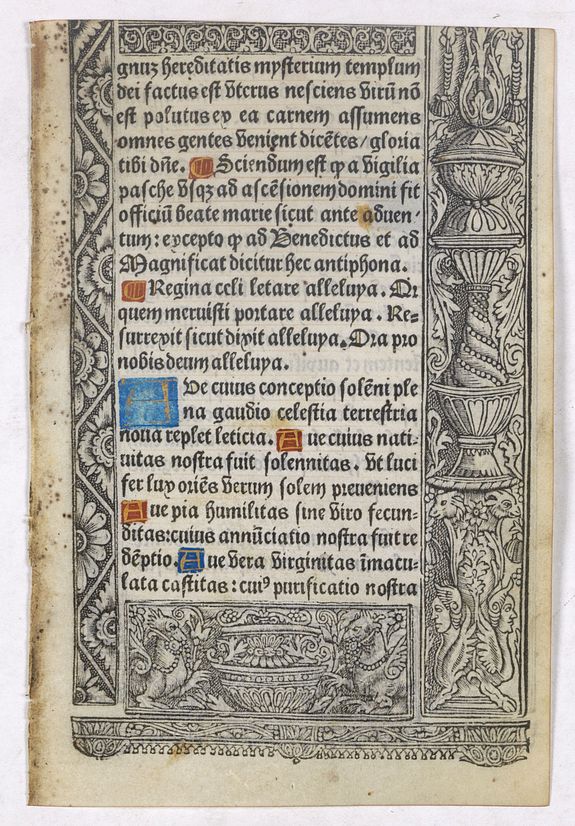 gnuz hereditatis mysterium templum
dei factus est vterus nesciens virū nō
est polutus ex ea carnem assumens
omnes gentes venient dicētes/gloria
tibi dn̄e. Sciendum est q̄ a vigilia
pasche vsq̄ ad ascēsionem domini fit
officiū beate marie sicut ante aduen-
tum: excepto q̄ ad Benedictus et ad
Magnificat dicitur hec antiphona.
Regina celi letare alleluya. Qr
quem meruisti portare alleluya. Re-
surrexit sicut dixit alleluya. Ora pro
nobis deum alleluya.
AVe cuius conceptio solēni ple
na gaudio celestia terrestria
noua replet leticia. Aue cuius nati-
uitas nostra fuit solennitas. Vt luci
fer lux oriēs verum solem preueniens
Aue pia humilitas sine viro fecun-
ditas: cuius annūciatio nostra fuit re
dēptio. Aue vera virginitas īmacu-
lata castitas: cuiꝰ purificatio nostra